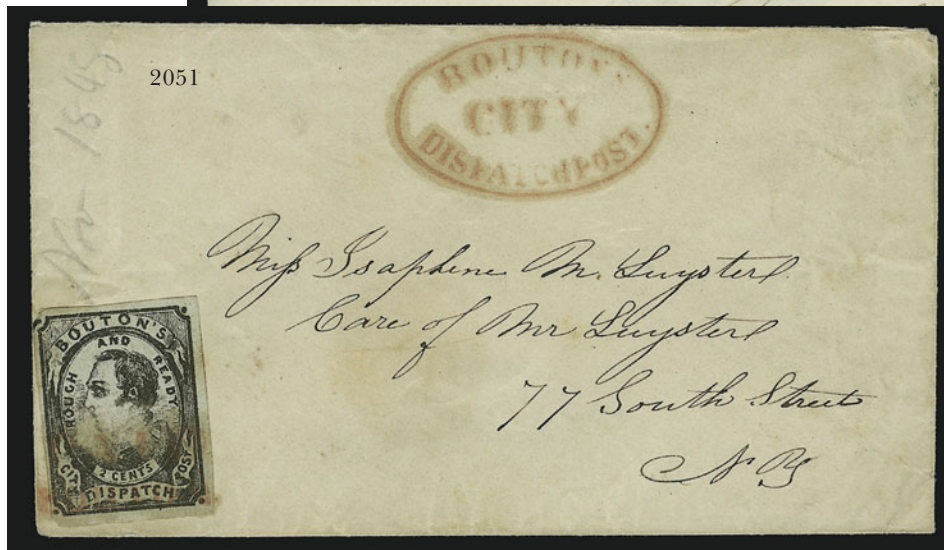 2051
Nov 1848
BOUTON'S
CITY
DISPATCH POST.
Miss Isaphene M. Luyster
Care of Mr Luyster
77 South Street
N Y
BOUTON'S
ROUGH AND READY
2 CENTS
CITY DISPATCH POST